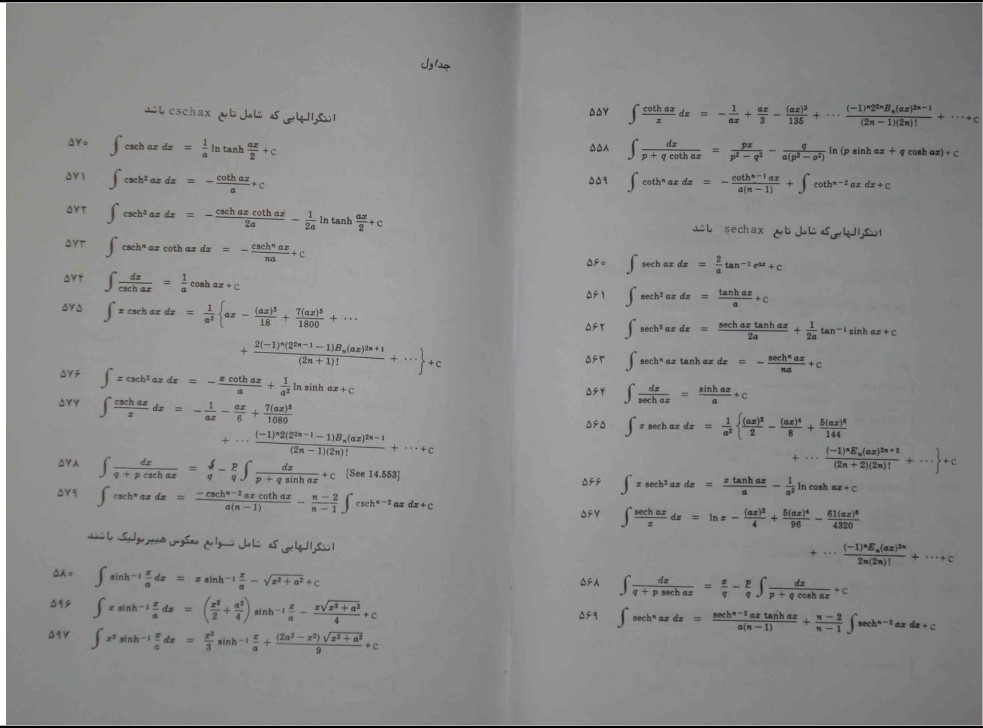 جداول
انتگرالهایی که شامل تابع cschax باشد
۵۷۰ ∫ csch ax dx = 1/a ln tanh ax/2 + C
۵۷۱ ∫ csch² ax dx = − coth ax/a + C
۵۷۲ ∫ csch³ ax dx = − csch ax coth ax/2a − 1/2a ln tanh ax/2 + C
۵۷۳ ∫ cschⁿ ax coth ax dx = − cschⁿ ax/na + C
۵۷۴ ∫ dx/csch ax = 1/a cosh ax + C
۵۷۵ ∫ x csch ax dx = 1/a² { ax − (ax)³/18 + 7(ax)⁵/1800 + ⋯
+ 2(−1)ⁿ(2²ⁿ⁻¹ − 1)Bₙ(ax)²ⁿ⁺¹/(2n + 1)! + ⋯ } + C
۵۷۶ ∫ x csch² ax dx = − x coth ax/a + 1/a² ln sinh ax + C
۵۷۷ ∫ csch ax/x dx = − 1/ax − ax/6 + 7(ax)³/1080
+ ⋯ (−1)ⁿ2(2²ⁿ⁻¹ − 1)Bₙ(ax)²ⁿ⁻¹/(2n − 1)(2n)! + ⋯ + C
۵۷۸ ∫ dx/(q + p csch ax) = x/q − p/q ∫ dx/(p + q sinh ax) + C [See 14.553]
۵۷۹ ∫ cschⁿ ax dx = − cschⁿ⁻² ax coth ax/a(n − 1) − (n − 2)/(n − 1) ∫ cschⁿ⁻² ax dx + C
انتگرالهایی که شامل تـوابع معکوس هیپربولیک باشند
۵۸۰ ∫ sinh⁻¹ x/a dx = x sinh⁻¹ x/a − √(x² + a²) + C
۵۹۶ ∫ x sinh⁻¹ x/a dx = (x²/2 + a²/4) sinh⁻¹ x/a − x√(x² + a²)/4 + C
۵۹۷ ∫ x² sinh⁻¹ x/a dx = x³/3 sinh⁻¹ x/a + (2a² − x²)√(x² + a²)/9 + C
۵۵۷ ∫ coth ax/x dx = − 1/ax + ax/3 − (ax)³/135 + ⋯ (−1)ⁿ2²ⁿBₙ(ax)²ⁿ⁻¹/(2n − 1)(2n)! + ⋯ + C
۵۵۸ ∫ dx/(p + q coth ax) = px/(p² − q²) − q/a(p² − q²) ln (p sinh ax + q cosh ax) + C
۵۵۹ ∫ cothⁿ ax dx = − cothⁿ⁻¹ ax/a(n − 1) + ∫ cothⁿ⁻² ax dx + C
انتگرالهایی‌که شامل تابع sechax باشد
۵۶۰ ∫ sech ax dx = 2/a tan⁻¹ eᵃˣ + C
۵۶۱ ∫ sech² ax dx = tanh ax/a + C
۵۶۲ ∫ sech³ ax dx = sech ax tanh ax/2a + 1/2a tan⁻¹ sinh ax + C
۵۶۳ ∫ sechⁿ ax tanh ax dx = − sechⁿ ax/na + C
۵۶۴ ∫ dx/sech ax = sinh ax/a + C
۵۶۵ ∫ x sech ax dx = 1/a² { (ax)²/2 − (ax)⁴/8 + 5(ax)⁶/144
+ ⋯ (−1)ⁿEₙ(ax)²ⁿ⁺²/(2n + 2)(2n)! + ⋯ } + C
۵۶۶ ∫ x sech² ax dx = x tanh ax/a − 1/a² ln cosh ax + C
۵۶۷ ∫ sech ax/x dx = ln x − (ax)²/4 + 5(ax)⁴/96 − 61(ax)⁶/4320
+ ⋯ (−1)ⁿEₙ(ax)²ⁿ/2n(2n)! + ⋯ + C
۵۶۸ ∫ dx/(q + p sech ax) = x/q − p/q ∫ dx/(p + q cosh ax) + C
۵۶۹ ∫ sechⁿ ax dx = sechⁿ⁻² ax tanh ax/a(n − 1) + (n − 2)/(n − 1) ∫ sechⁿ⁻² ax dx + C